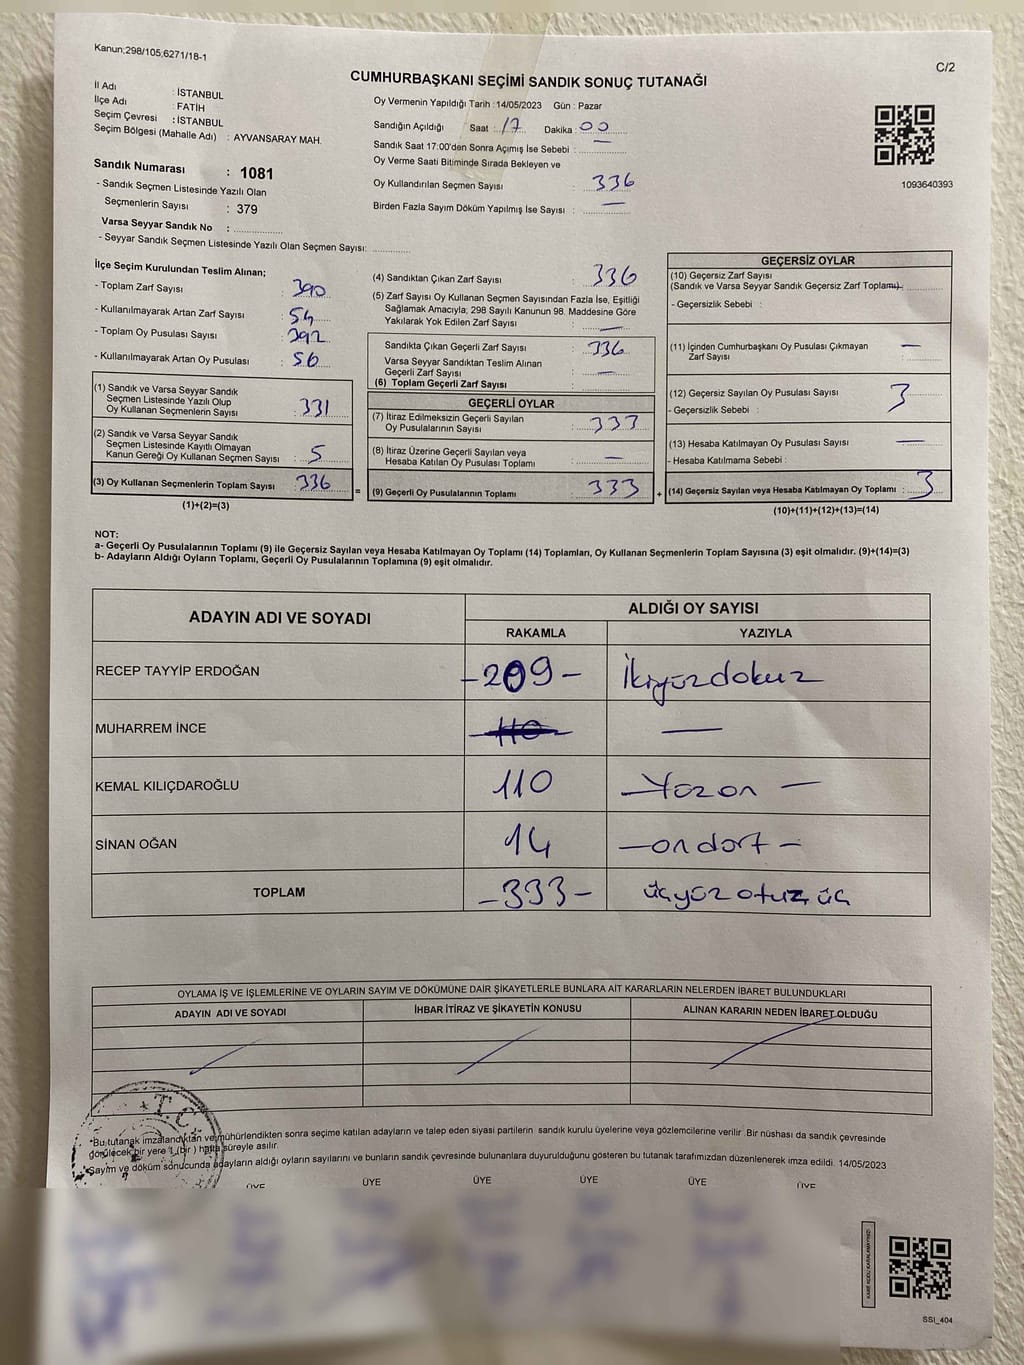 Kanun;298/105;6271/18-1
C/2
CUMHURBAŞKANI SEÇİMİ SANDIK SONUÇ TUTANAĞI
İl Adı : İSTANBUL
İlçe Adı : FATİH
Seçim Çevresi : İSTANBUL
Seçim Bölgesi (Mahalle Adı) : AYVANSARAY MAH.
Sandık Numarası : 1081
- Sandık Seçmen Listesinde Yazılı Olan
Seçmenlerin Sayısı : 379
Varsa Seyyar Sandık No :
- Seyyar Sandık Seçmen Listesinde Yazılı Olan Seçmen Sayısı:
Oy Vermenin Yapıldığı Tarih : 14/05/2023 Gün : Pazar
Sandığın Açıldığı Saat : 17 Dakika : 00
Sandık Saat 17:00'den Sonra Açımış İse Sebebi : —
Oy Verme Saati Bitiminde Sırada Bekleyen ve
Oy Kullandırılan Seçmen Sayısı : 336
Birden Fazla Sayım Döküm Yapılmış İse Sayısı : —
1093640393
İlçe Seçim Kurulundan Teslim Alınan;
- Toplam Zarf Sayısı : 390
- Kullanılmayarak Artan Zarf Sayısı : 54
- Toplam Oy Pusulası Sayısı : 392
- Kullanılmayarak Artan Oy Pusulası : 56
(1) Sandık ve Varsa Seyyar Sandık
Seçmen Listesinde Yazılı Olup
Oy Kullanan Seçmenlerin Sayısı : 331
(2) Sandık ve Varsa Seyyar Sandık
Seçmen Listesinde Kayıtlı Olmayan
Kanun Gereği Oy Kullanan Seçmen Sayısı : 5
(3) Oy Kullanan Seçmenlerin Toplam Sayısı : 336
(1)+(2)=(3)
=
(4) Sandıktan Çıkan Zarf Sayısı : 336
(5) Zarf Sayısı Oy Kullanan Seçmen Sayısından Fazla İse, Eşitliği
Sağlamak Amacıyla; 298 Sayılı Kanunun 98. Maddesine Göre
Yakılarak Yok Edilen Zarf Sayısı : —
Sandıkta Çıkan Geçerli Zarf Sayısı : 336
Varsa Seyyar Sandıktan Teslim Alınan
Geçerli Zarf Sayısı : —
(6) Toplam Geçerli Zarf Sayısı :
GEÇERLİ OYLAR
(7) İtiraz Edilmeksizin Geçerli Sayılan
Oy Pusulalarının Sayısı : 333
(8) İtiraz Üzerine Geçerli Sayılan veya
Hesaba Katılan Oy Pusulası Toplamı : —
(9) Geçerli Oy Pusulalarının Toplamı : 333
+
GEÇERSİZ OYLAR
(10) Geçersiz Zarf Sayısı
(Sandık ve Varsa Seyyar Sandık Geçersiz Zarf Toplamı) : —
- Geçersizlik Sebebi :
(11) İçinden Cumhurbaşkanı Oy Pusulası Çıkmayan
Zarf Sayısı : —
(12) Geçersiz Sayılan Oy Pusulası Sayısı : 3
- Geçersizlik Sebebi :
(13) Hesaba Katılmayan Oy Pusulası Sayısı : —
- Hesaba Katılmama Sebebi :
(14) Geçersiz Sayılan veya Hesaba Katılmayan Oy Toplamı : 3
(10)+(11)+(12)+(13)=(14)
NOT:
a- Geçerli Oy Pusulalarının Toplamı (9) ile Geçersiz Sayılan veya Hesaba Katılmayan Oy Toplamı (14) Toplamları, Oy Kullanan Seçmenlerin Toplam Sayısına (3) eşit olmalıdır. (9)+(14)=(3)
b- Adayların Aldığı Oyların Toplamı, Geçerli Oy Pusulalarının Toplamına (9) eşit olmalıdır.
ADAYIN ADI VE SOYADI ALDIĞI OY SAYISI
RAKAMLA YAZIYLA
RECEP TAYYİP ERDOĞAN -209- İkiyüzdokuz
MUHARREM İNCE 110 —
KEMAL KILIÇDAROĞLU 110 — Yüzon —
SİNAN OĞAN 14 — ondört —
TOPLAM -333- üçyüzotuzüç
OYLAMA İŞ VE İŞLEMLERİNE VE OYLARIN SAYIM VE DÖKÜMÜNE DAİR ŞİKAYETLERLE BUNLARA AİT KARARLARIN NELERDEN İBARET BULUNDUKLARI
ADAYIN ADI VE SOYADI İHBAR İTİRAZ VE ŞİKAYETİN KONUSU ALINAN KARARIN NEDEN İBARET OLDUĞU
T.C.
*Bu tutanak imzalandıktan ve mühürlendikten sonra seçime katılan adayların ve talep eden siyasi partilerin sandık kurulu üyelerine veya gözlemcilerine verilir. Bir nüshası da sandık çevresinde
görülecek bir yere 1 (bir) hafta süreyle asılır.
*Sayım ve döküm sonucunda adayların aldığı oyların sayılarını ve bunların sandık çevresinde bulunanlara duyurulduğunu gösteren bu tutanak tarafımızdan düzenlenerek imza edildi. 14/05/2023
ÜYE ÜYE ÜYE ÜYE ÜYE ÜYE
KARE KODU KARALAMAYINIZ!
SSI_404